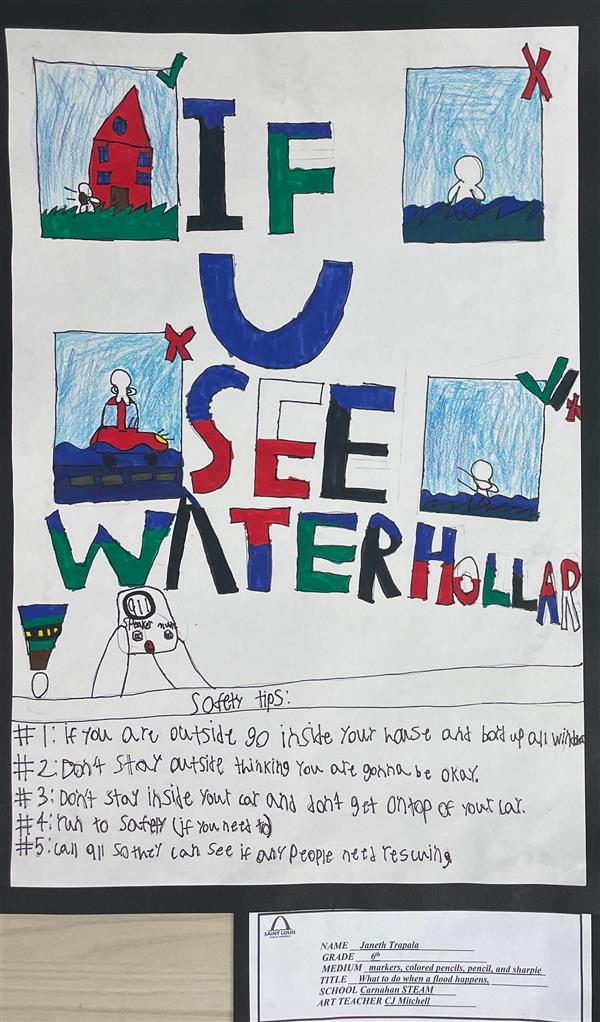 IF
U
SEE
WATER HOLLAR
911
Safety tips:
#1: if you are outside go inside your house and bord up all windows
#2: Don't stay outside thinking you are gonna be okay.
#3: Don't stay inside your car and don't get on top of your car.
#4: run to safety (if you need to)
#5: call 911 so they can see if any people need rescuing.
SAINT LOUIS
NAME Janeth Trapala
GRADE 6th
MEDIUM markers, colored pencils, pencil, and sharpie
TITLE What to do when a flood happens.
SCHOOL Carnahan STEAM
ART TEACHER CJ Mitchell